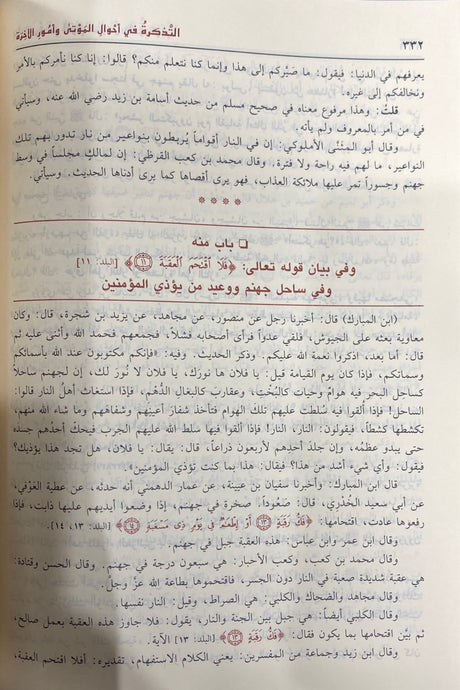 ٣٣٢
التَّذكرةُ في أحْوالِ المَوْتَى وأمُورِ الآخرَة
يعرفهم في الدنيا: فيقول: ما صيَّركم إلى هذا وإنما كنا نتعلم منكم؟ قالوا: إنا كنا نأمركم بالأمر
ونخالفكم إلى غيره.
قلتُ: وهذا مرفوع معناه في صحيح مسلم من حديث أسامة بن زيد رضي الله عنه، وسيأتي
في من أمر بالمعروف ولم يأته.
وقال أبو المثنَّى الأملوكي: إن في النار أقواماً يُربطون بنواعير من نار تدور بهم تلك
النواعير، ما لهم فيه راحة ولا فترة. وقال محمد بن كعب القرظي: إن لمالكٍ مجلساً في وسط
جهنم وجسوراً تمر عليها ملائكة العذاب، فهو يرى أقصاها كما يرى أدناها الحديث. وسيأتي.
* * * *
❑ باب منه
وفي بيان قوله تعالى: ﴿فَلَا ٱقْتَحَمَ ٱلْعَقَبَةَ ١١﴾ [البلد: ١١]
وفي ساحل جهنم ووعيد من يؤذي المؤمنين
(ابن المبارك) قال: أخبرنا رجل عن منصور، عن مجاهد، عن يزيد بن شجرة، قال: وكان
معاوية بعثه على الجيوش، فلقي عدواً فرأى أصحابه فشلاً، فجمعهم فحمد الله وأثنى عليه ثم
قال: أما بعد، اذكروا نعمة الله عليكم. وذكر الحديث. وفيه: «فإنكم مكتوبون عند الله بأسمائكم
وسماتكم، فإذا كان يوم القيامة قيل: يا فلان ها نورك، يا فلان لا نُورَ لك، إن لجهنم ساحلاً
كساحل البحر فيه هوامٌ وحيات كالبُخْت، وعقارب كالبغال الدُّهْم، فإذا استغاث أهل النار قالوا:
الساحل! فإذا ألقوا فيه سُلطت عليهم تلك الهوام فتأخذ شفارَ أعينهم وشفاههم وما شاء الله منهم،
تكشطها كشطاً، فيقولون: النار، النار! فإذا ألقوا فيها سلط الله عليهم الجرب فيحكّ أحدُهم جسدَه
حتى يبدو عظمُه، وإن جلدَ أحدِهم لأربعون ذراعاً، قال: يقال: يا فلان، هل تجد هذا يؤذيك؟
فيقول: وأي شيء أشد من هذا؟ فيقال: هذا بما كنت تؤذي المؤمنين».
قال ابن المبارك: وأخبرنا سفيان بن عيينة، عن عمار الدهني أنه حدثه، عن عطية العَوْفي،
عن أبي سعيد الخُدْري، قال: صَعُوداً، صخرة في جهنم، إذا وضعوا أيديهم عليها ذابت، فإذا
رفعوها عادت، اقتحامها: ﴿فَكُّ رَقَبَةٍ ١٣ أَوْ إِطْعَٰمٌ فِي يَوْمٍ ذِي مَسْغَبَةٍ ١٤﴾ [البلد: ١٣، ١٤].
وقال ابن عمر وابن عباس: هذه العقبة جبل في جهنم.
وقال محمد بن كعب، وكعب الأحبار: هي سبعون درجة في جهنم. وقال الحسن وقتادة:
هي عقبة شديدة صعبة في النار دون الجسر، فاقتحموها بطاعة الله عزَّ وجلّ.
وقال مجاهد والضحاك والكلبي: هي الصراط، وقيل: النار نفسها.
وقال الكلبي أيضاً: هي جبل بين الجنة والنار، يقول: فلا جاوز هذه العقبة بعمل صالح،
ثم بيَّن اقتحامها بما يكون فقال: ﴿فَكُّ رَقَبَةٍ ١٣﴾ [البلد: ١٣] الآية.
وقال ابن زيد وجماعة من المفسرين: يعني الكلام الاستفهام، تقديره: أفلا اقتحم العقبة،